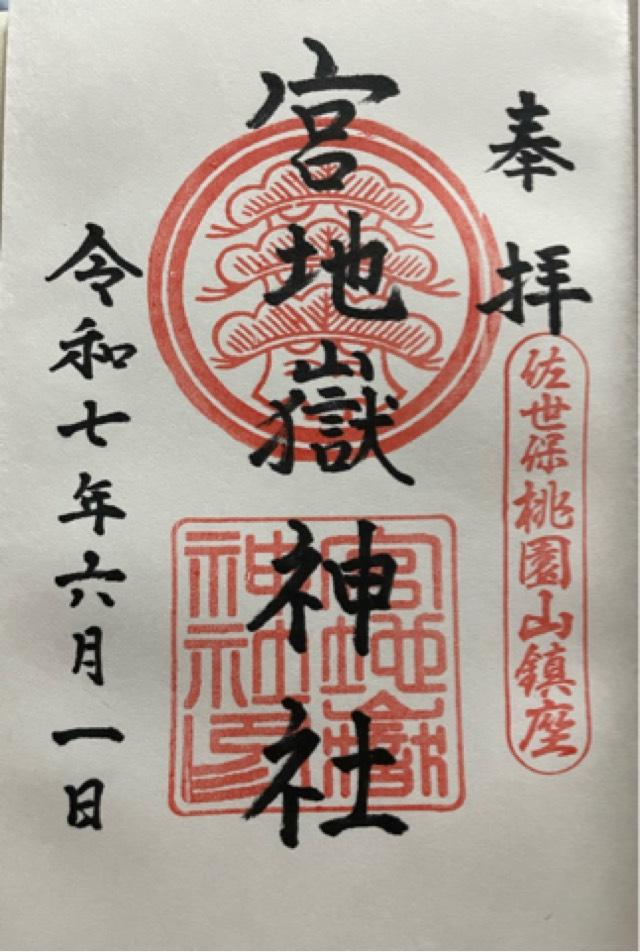 奉拝
佐世保桃園山鎮座
宮地嶽神社
宮地嶽
神社印
令和七年六月一日